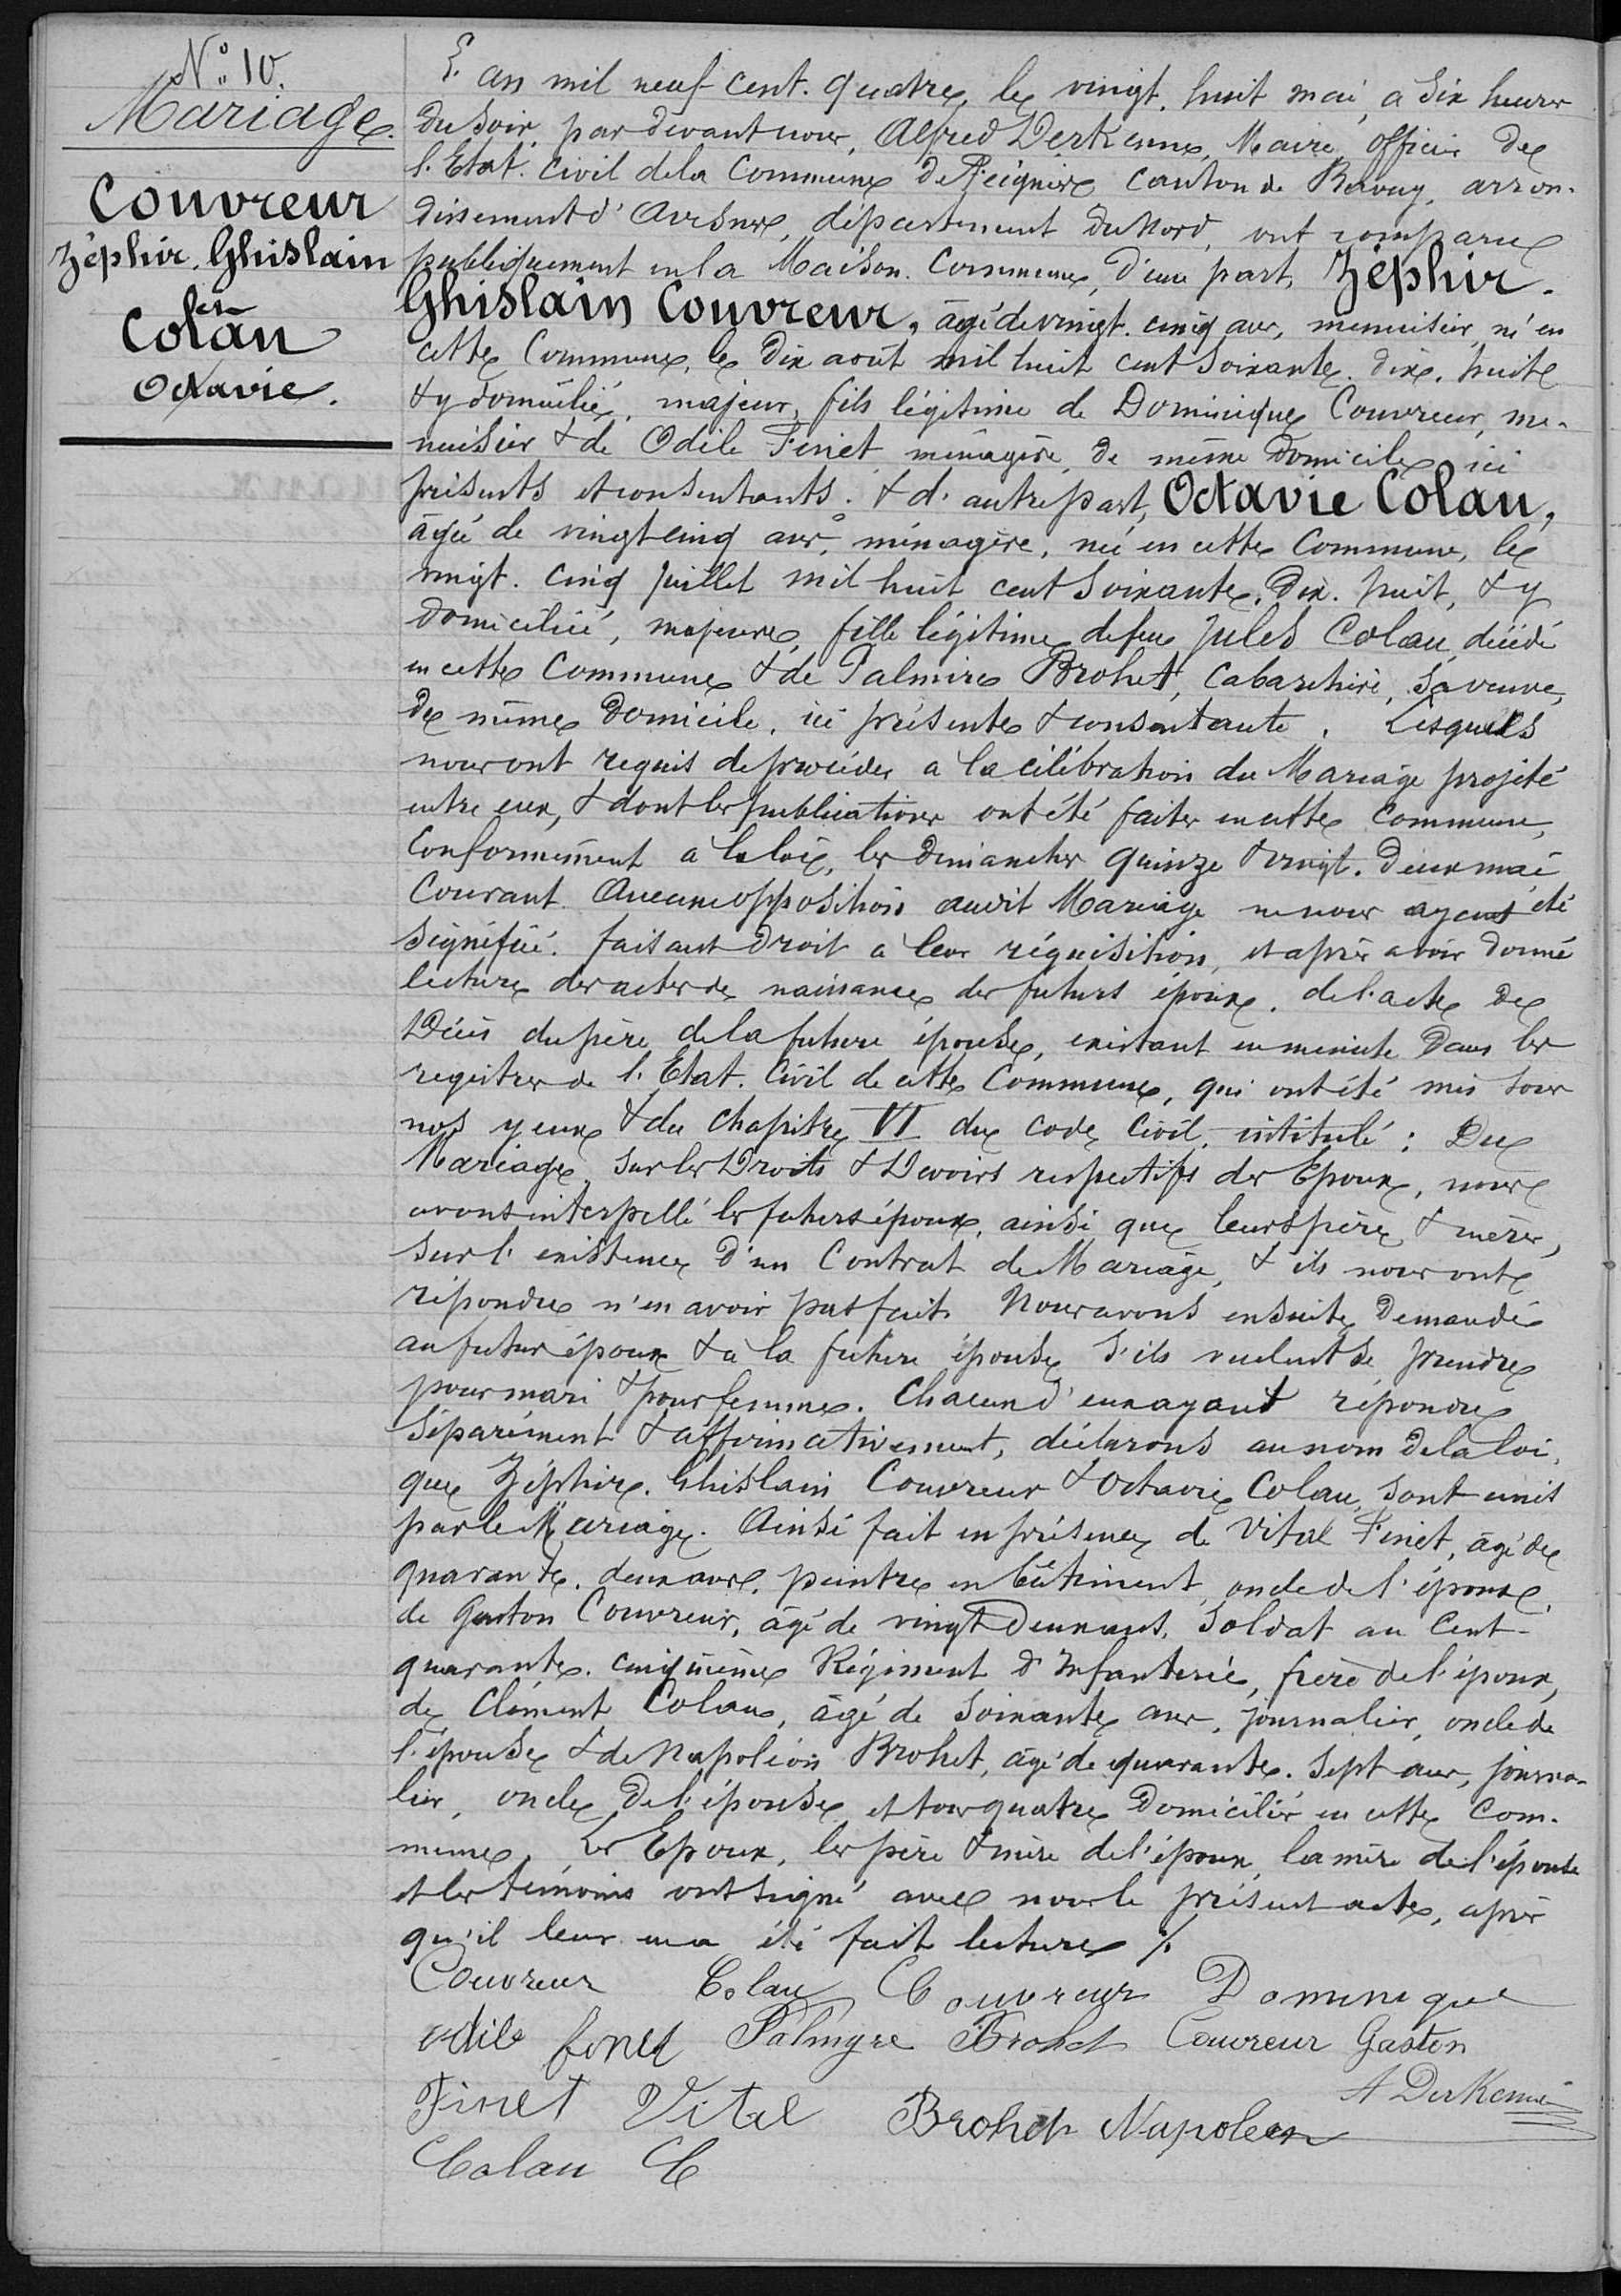 N° 10.
Mariage.
Couvreur
Zéphir, Ghislain
en
Colau
Octavie.
L'an mil neuf cent quatre, le vingt huit mai, a six heures
du soir, par devant nous, Alfred Derkenne, Maire, officier de
l'Etat civil de la Commune de Feignies canton de Bavay, arron-
dissement d'Avesnes, département du Nord, ont comparu
publiquement en la Maison Commune, d'une part, Zéphir.
Ghislain Couvreur, âgé de vingt cinq ans, menuisier, né en
cette Commune, le dix août mil huit cent soixante dix huit
& y domicilié, majeur, fils légitime de Dominique Couvreur, me-
nuisier & de Odile Finet, ménagère, de même domicile, ici
présents et consentants. & d'autre part, Octavie Colau,
âgée de vingt cinq ans, ménagère, née en cette Commune, le
vingt. cinq juillet mil huit cent soixante. dix. huit, & y
domiciliée, majeure, fille légitime de feu Jules Colau, décédé
en cette Commune & de Palmire Brohet, cabaretière, sa veuve,
de même domicile, ici présente & consentante. Lesquels
nous ont requis de procéder a la célébration du Mariage projeté
entre eux, & dont les publications ont été faites en cette Commune,
Conformément a la loi, les dimanches quinze & vingt. deux mai
Courant. Aucune opposition audit Mariage ne nous ayant été
signifiée. faisant droit a leur réquisition, et après avoir donné
lecture des actes de naissance des futurs époux, de l'acte de
Décès du père de la future épouse, existant en minute dans les
registres de l'Etat. Civil de cette Commune, qui ont été mis sous
nos yeux & du chapitre VI du code Civil, intitulé : Du
Mariage, sur les Droits & Devoirs respectifs des Epoux, nous
avons interpellé les futurs époux, ainsi que leurs père & mères,
sur l'existence d'un Contrat de Mariage, & ils nous ont
répondu n'en avoir pas fait. Nous avons ensuite demandé
au futur époux & a la future épouse s'ils veulent se prendre
pour mari & pour femme. Chacun d'eux ayant répondu
séparément & affirmativement, déclarons au nom de la loi,
que Zéphir. Ghislain Couvreur & Octavie Colau, sont unis
par le Mariage. Ainsi fait en présence de Vital Finet, âgé de
quarante. deux ans, peintre en bâtiment, oncle de l'époux,
de Gaston Couvreur, âgé de vingt deux ans, soldat au Cent-
quarante. cinquième Régiment d'Infanterie, frère de l'époux,
de Clément Colau, âgé de soixante ans, journalier, oncle de
l'épouse & de Napoléon Brohet, âgé de quarante. sept ans, journa-
lier, oncle de l'épouse, et tous quatre domiciliés en cette Com-
mune. Les Epoux, les père & mère de l'époux, la mère de l'épouse
et les témoins ont signé avec nous le présent acte, après
qu'il leur en a été fait lecture %
Couvreur Colau Couvreur Dominique
odile finet Palmyre Brohet Couvreur Gaston
A Derkenne
Finet Vital Brohet Napoleon
Colau C